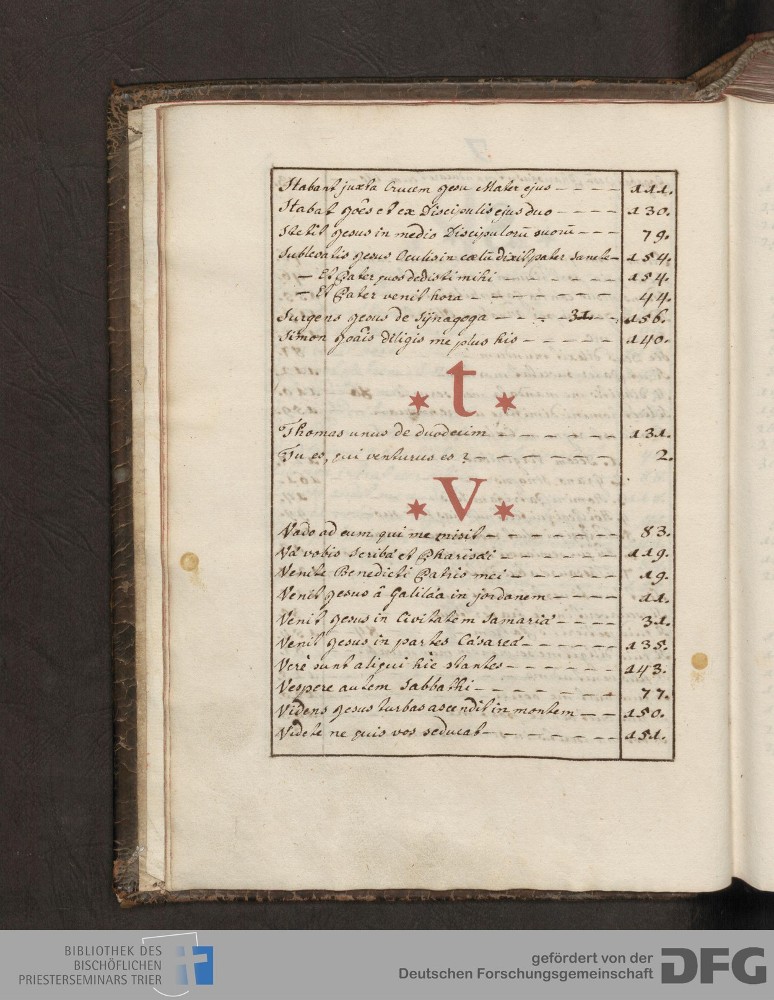 Stabant juxta Crucem Jesu Mater ejus – – – – 111.
Stabat Joēs et ex Discipulis ejus duo – – – – 130.
Stetit Jesus in medio Discipulorū suorū – – – 79.
Sublevatis Jesus Oculis in cœlū dixit pater sancte – 154.
– Et Pater quos dedisti mihi – – – – – – 154.
– Et Pater venit hora – – – – – – – 44.
Surgens Jesus de Synagoga – – – – 31. – 156.
Simon Joāis diligis me plus his – – – – – 140.
* t *
Thomas unus de duodecim – – – – – – – 131.
Tu es, qui venturus es? – – – – – – – 2.
* V *
Vado ad eum qui me misit – – – – – – – 83.
Væ vobis scribæ et Pharisæi – – – – – – 119.
Venite Benedicti Patris mei – – – – – – 19.
Venit Jesus â Galilæa in jordanem – – – – 11.
Venit Jesus in Civitatem Samariæ – – – – 31.
Venit Jesus in partes Cæsareæ – – – – – – 135.
Verè sunt aliqui hic stantes – – – – – – 143.
Vespere autem Sabbathi – – – – – – – 77.
Videns Jesus turbas ascendit in montem – – 150.
Videte ne quis vos seducat – – – – – – – 151.
BIBLIOTHEK DES
BISCHÖFLICHEN
PRIESTERSEMINARS TRIER
gefördert von der
Deutschen Forschungsgemeinschaft
DFG